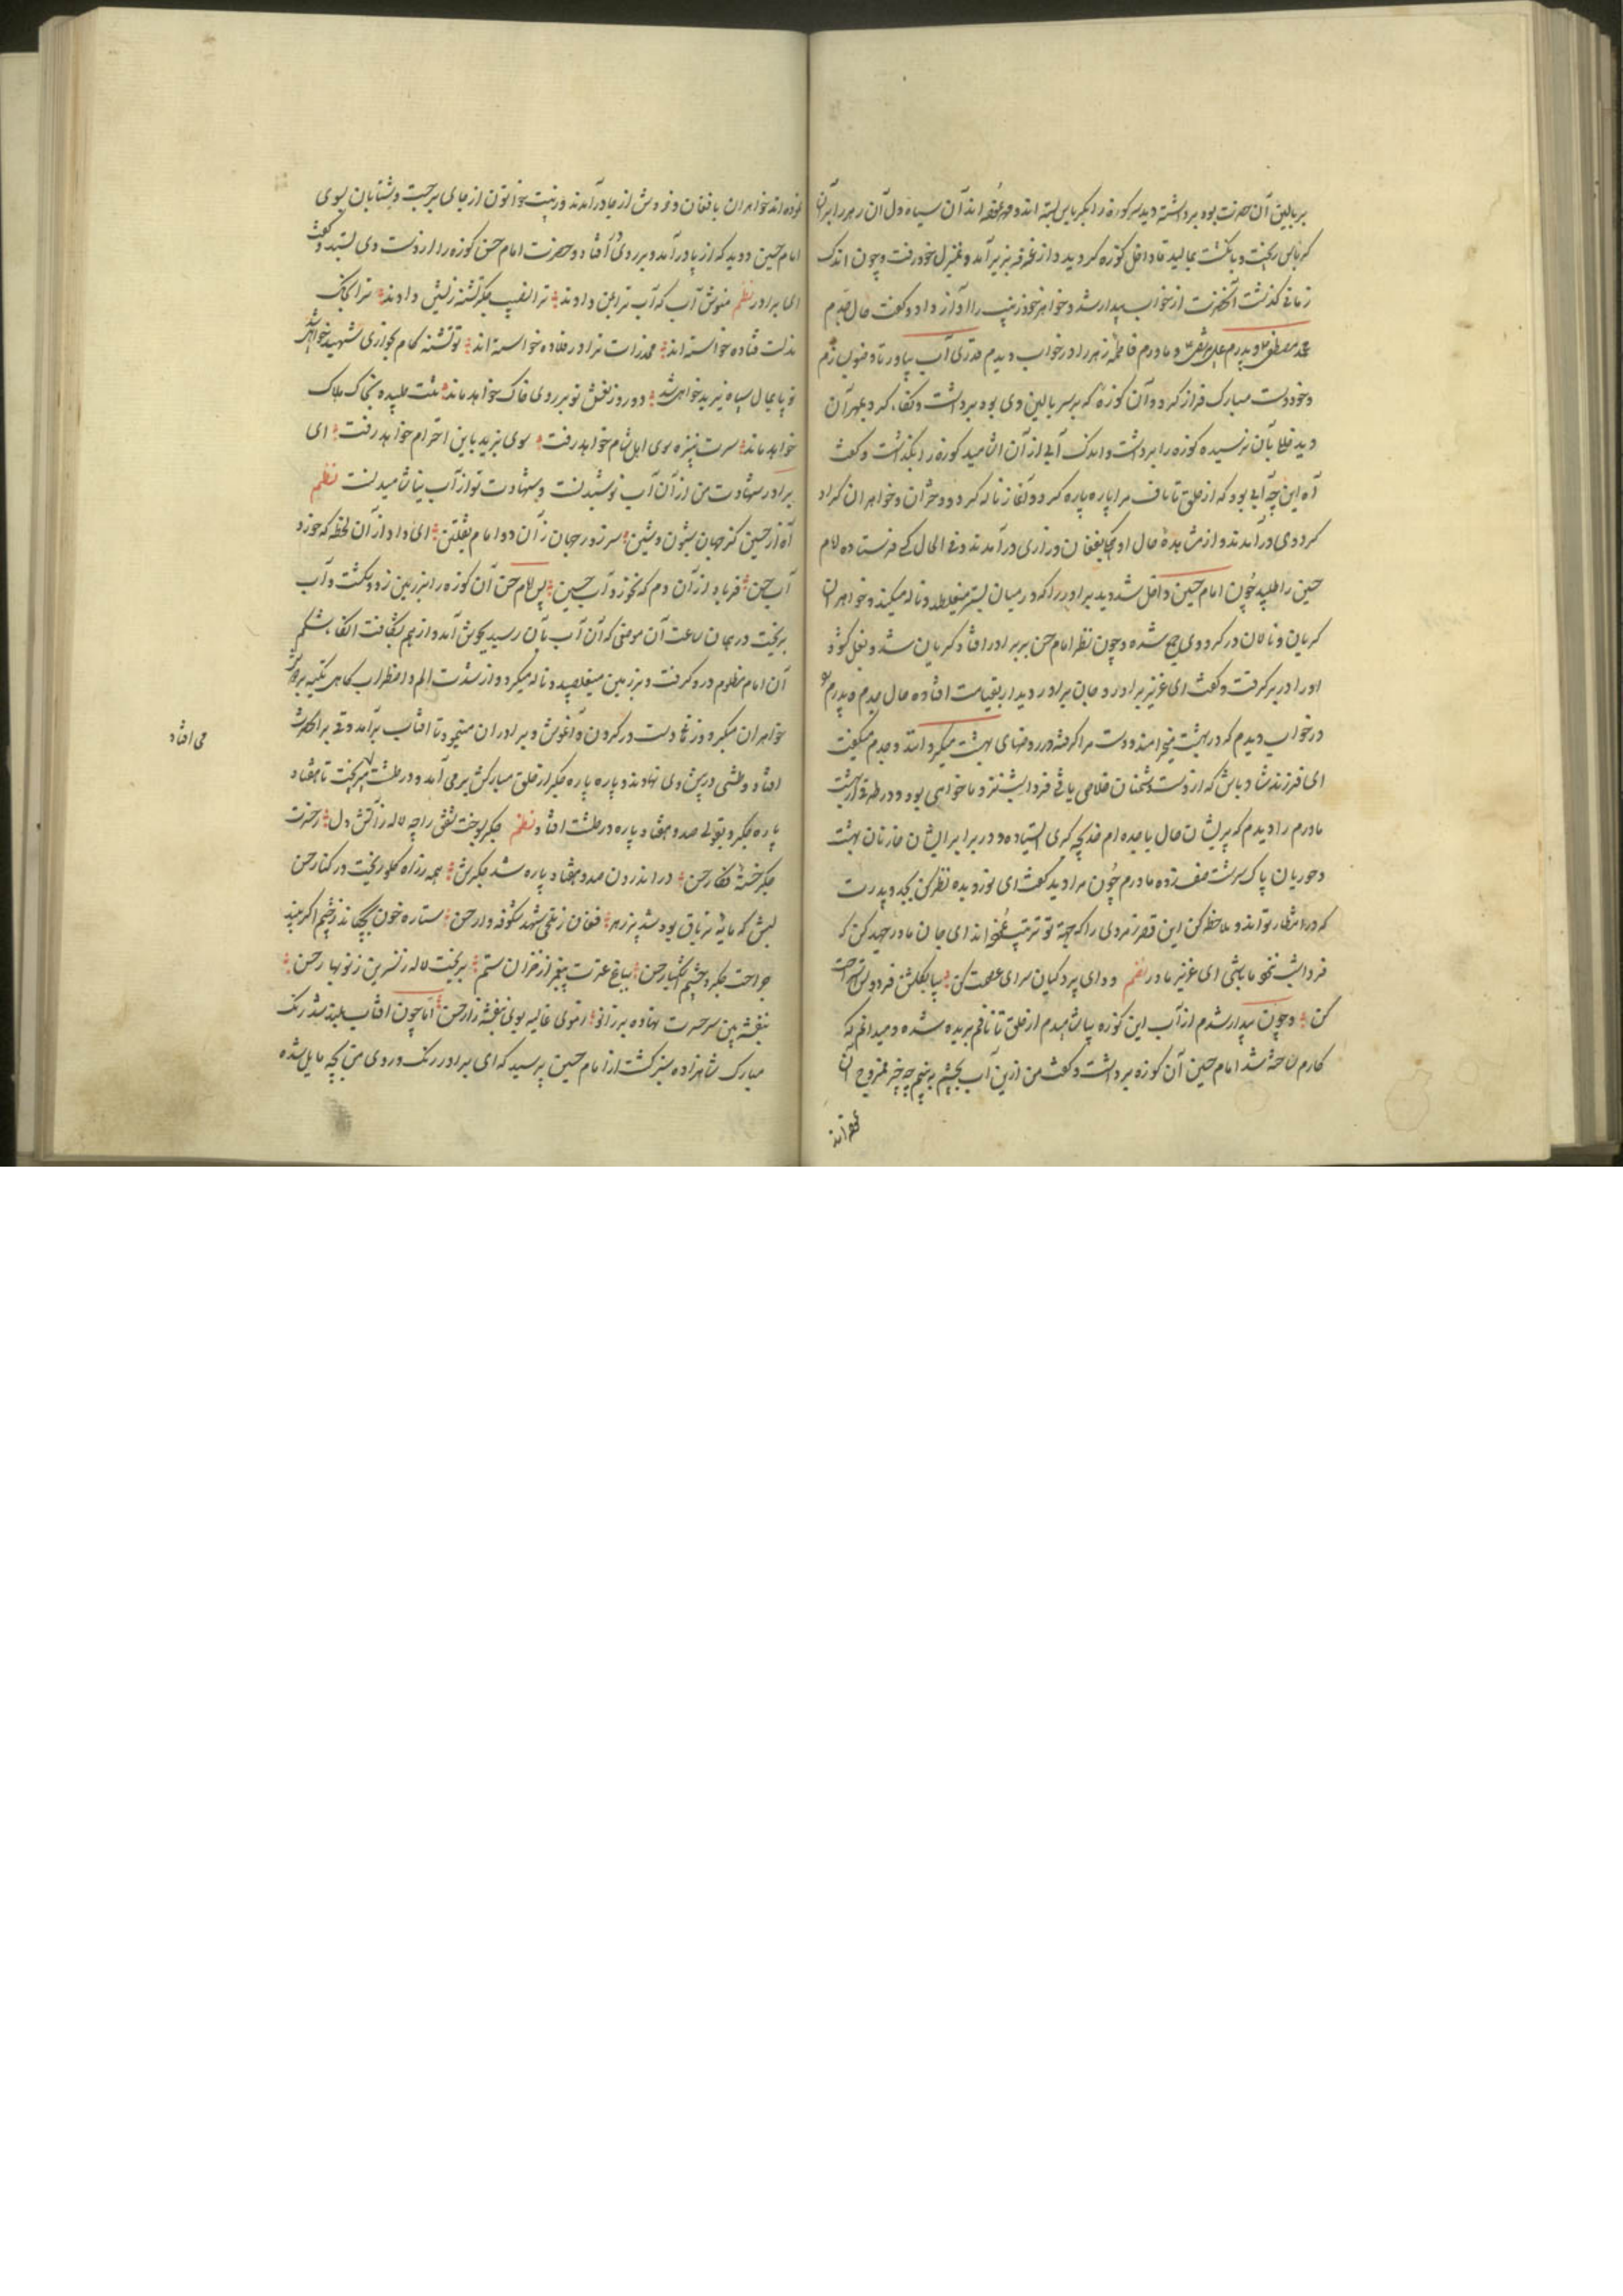 بربالین آن حضرت بود برداشته دید سر کوزه را بکرباس بسته اند و مهر نموده اند آن سیاه دل آن زهر را بر آن
کرباس ریخت و بانگشت بمالید تا داخل کوزه کردید و از غرفه بزیر آمد و بمنزل خود رفت و چون اندک
زمانی گذشت آنحضرت از خواب بیدار شد و خواهر خود زینب را آواز داد و گفت حال جدم
محمد مصطفی و پدرم علی مرتضی و مادرم فاطمه زهرا در خواب دیدم قدری آب بیاور تا وضو بسازم
و خود دست مبارک فراز کرد و آن کوزه که بر سر بالین وی بود برداشت و نگاه کرد مهر آن
دید خللی بآن نرسیده کوزه را برداشت و اندک آبی از آن اشامید کوزه را بگذاشت و گفت
آه این چه آبی بود که از حلق تا ناف مرا پاره پاره کرد و آغاز ناله کرد و دختران و خواهران
کرد وی درآمدند و از مشاهده حال او بفغان و زاری درآمدند و فی الحال کس فرستاده امام
حسین را طلبید چون امام حسین داخل شد دید برادر را که در میان بستر میغلطد و ناله میکند و خواهران
گریان و نالان در کرد وی جمع شده و چون نظر امام حسن بر برادر افتاد گریان شد و بغل گشود
او را در بر گرفت و گفت ای عزیز برادر و جان برادر دیدار بقیامت افتاده حال جدم و پدرم
در خواب دیدم که در بهشت میخرامند و دست مرا گرفته در روضهای بهشت میگردانند و جدم میگفت
ای فرزند شاد باش که از دست دشمنان خلاصی یافتی فردا شب نزد ما خواهی بود و در طرف بهشت
مادرم را دیدم که پریشان حال با جده ام خدیجه کبری ایستاده و در برابر ایشان خازنان بهشت
و حوریان پاک سرشت صف زده مادرم چون مرا دید گفت ای نور دیده نظر کن بجد و پدرت
که در انتظار تواند و ملاحظه کن این قصر زمردی را که بجهة تو ترتیب نموده اند ای جان مادر جهد کن که
فردا شب نزد ما باشی ای عزیز مادر نظم ودای پردگیان سرای عصمت کن بیا بگلشن فردوس استراحت
کن و چون بیدار شدم از آب این کوزه بیاشامیدم از حلق تا نافم بریده شده و میدانم که
کارم ساخته شد امام حسین آن کوزه برداشت و گفت من ازین آب بچشم به بینم چه چیز ممزوج آن
نموده اند خواهران بافغان و خروش از جا درآمدند و زینب خواتون از جای برجست و شتابان بسوی
امام حسین دوید که از پا درآمد و بر روی افتاد و حضرت امام حسن کوزه را از دست وی بستد و گفت
ای برادر نظم منوش آب که آب ترا بمن دادند ترا نصیب جگر تشنه زیستن دادند ترا بخاک
مذلت فتاده خواسته اند مخدرات ترا در قلاده خواسته اند تو تشنه کام بخواری شهید خواهی شد
تو پایمال سپاه یزید خواهی شد دو روز نعش تو بر روی خاک خواهد ماند تنت طپیده بخاک هلاک
خواهد ماند سرت بنیزه سوی اهل شام خواهد رفت سوی یزید باین احترام خواهد رفت ای
برادر شهادت من از آن آب نوشیدنست و شهادت تو از آب نیاشامیدنست نظم
آه از حسین کز جهان شیون و شین سر زد ز جهان ز آن دو امام ثقلین ای داد از آن لحظه که خورد
آب حسن فریاد از آن دم که نخورد آب حسین پس امام حسن آن کوزه را بر زمین زد و بشکست و آب
بریخت در همان ساعت آن موضعی که آن آب بآن رسید بجوش آمد و از هم بشکافت القصه شکم
آن امام مظلوم درد گرفت و بر زمین میغلطید و ناله میکرد و از شدت الم و اضطراب گاهی تکیه بر
خواهران میکرد و زمانی دست در گردن و آغوش برادران مینمود تا افتاب برآمد و قی بر آنحضرت
افتاد و طشتی در پیش وی نهادند و پاره پاره جگر از حلق مبارکش برمی آمد و در طشت میریخت تا هفتاد
می افتاد
پاره جگر و بقولی صد و هفتاد پاره در طشت افتاد نظم جگر بسوخت شفق را چه لاله ز آتش دل ز حسرت
جگر خسته فکار حسن در اندرون صد و هفتاد پاره شد جگرش همه ز راه گلو ریخت در کنار حسن
لبش که مایه تریاق بود شد پر زهر فغان ز تلخی شهد شکوفه وار حسن ستاره خون بچکاند ز چشم اگر بیند
جراحت جگر و چشم اشکبار حسن بباغ عترت پیغمبر از خزان ستم بریخت لاله و نسرین ز نوبهار حسن
بنفشه بین سر حسرت نهاده بر زانو ز موی غالیه بوی بنفشه زار حسن اما چون افتاب بلند شد رنگ
مبارک شاهزاده سبز گشت از امام حسین پرسید که ای برادر رنگ و روی من بچه مایل شده